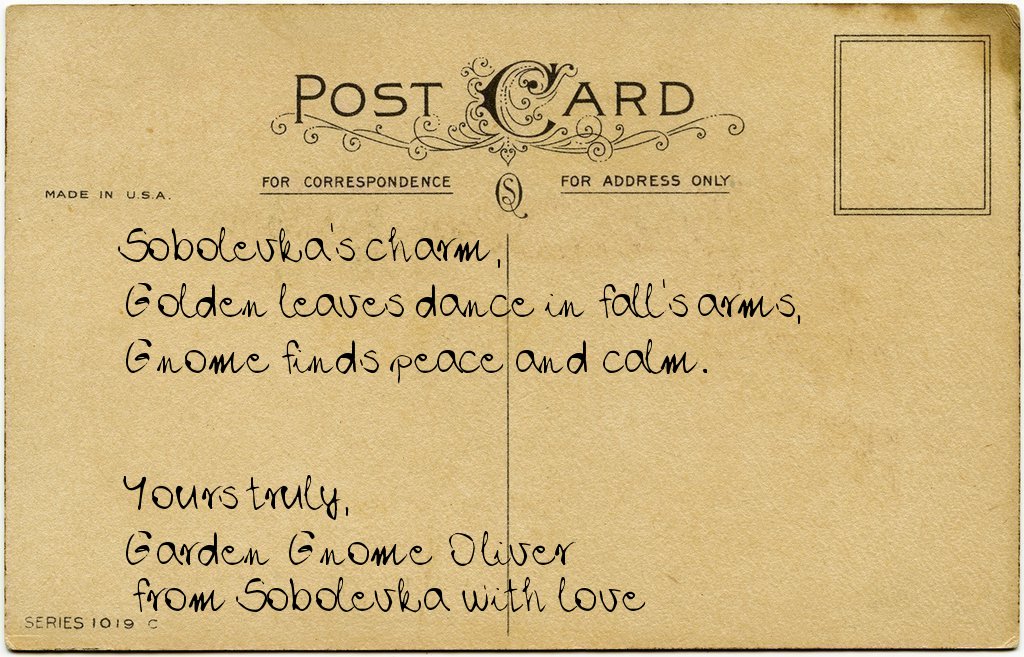 POST CARD
FOR CORRESPONDENCE
FOR ADDRESS ONLY
MADE IN U.S.A.
Sobolevka's charm,
Golden leaves dance in fall's arms,
Gnome finds peace and calm.
Yours truly,
Garden Gnome Oliver
from Sobolevka with love
SERIES 1019 C